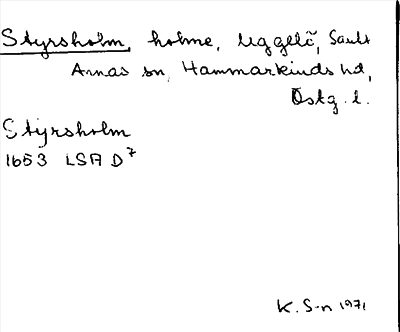 Styrsholm, holme, Uggelö, Sankt
Annas sn, Hammarkinds hd,
Östg. l.
Styrsholm
1653 LSA D7
K. S-n 1971